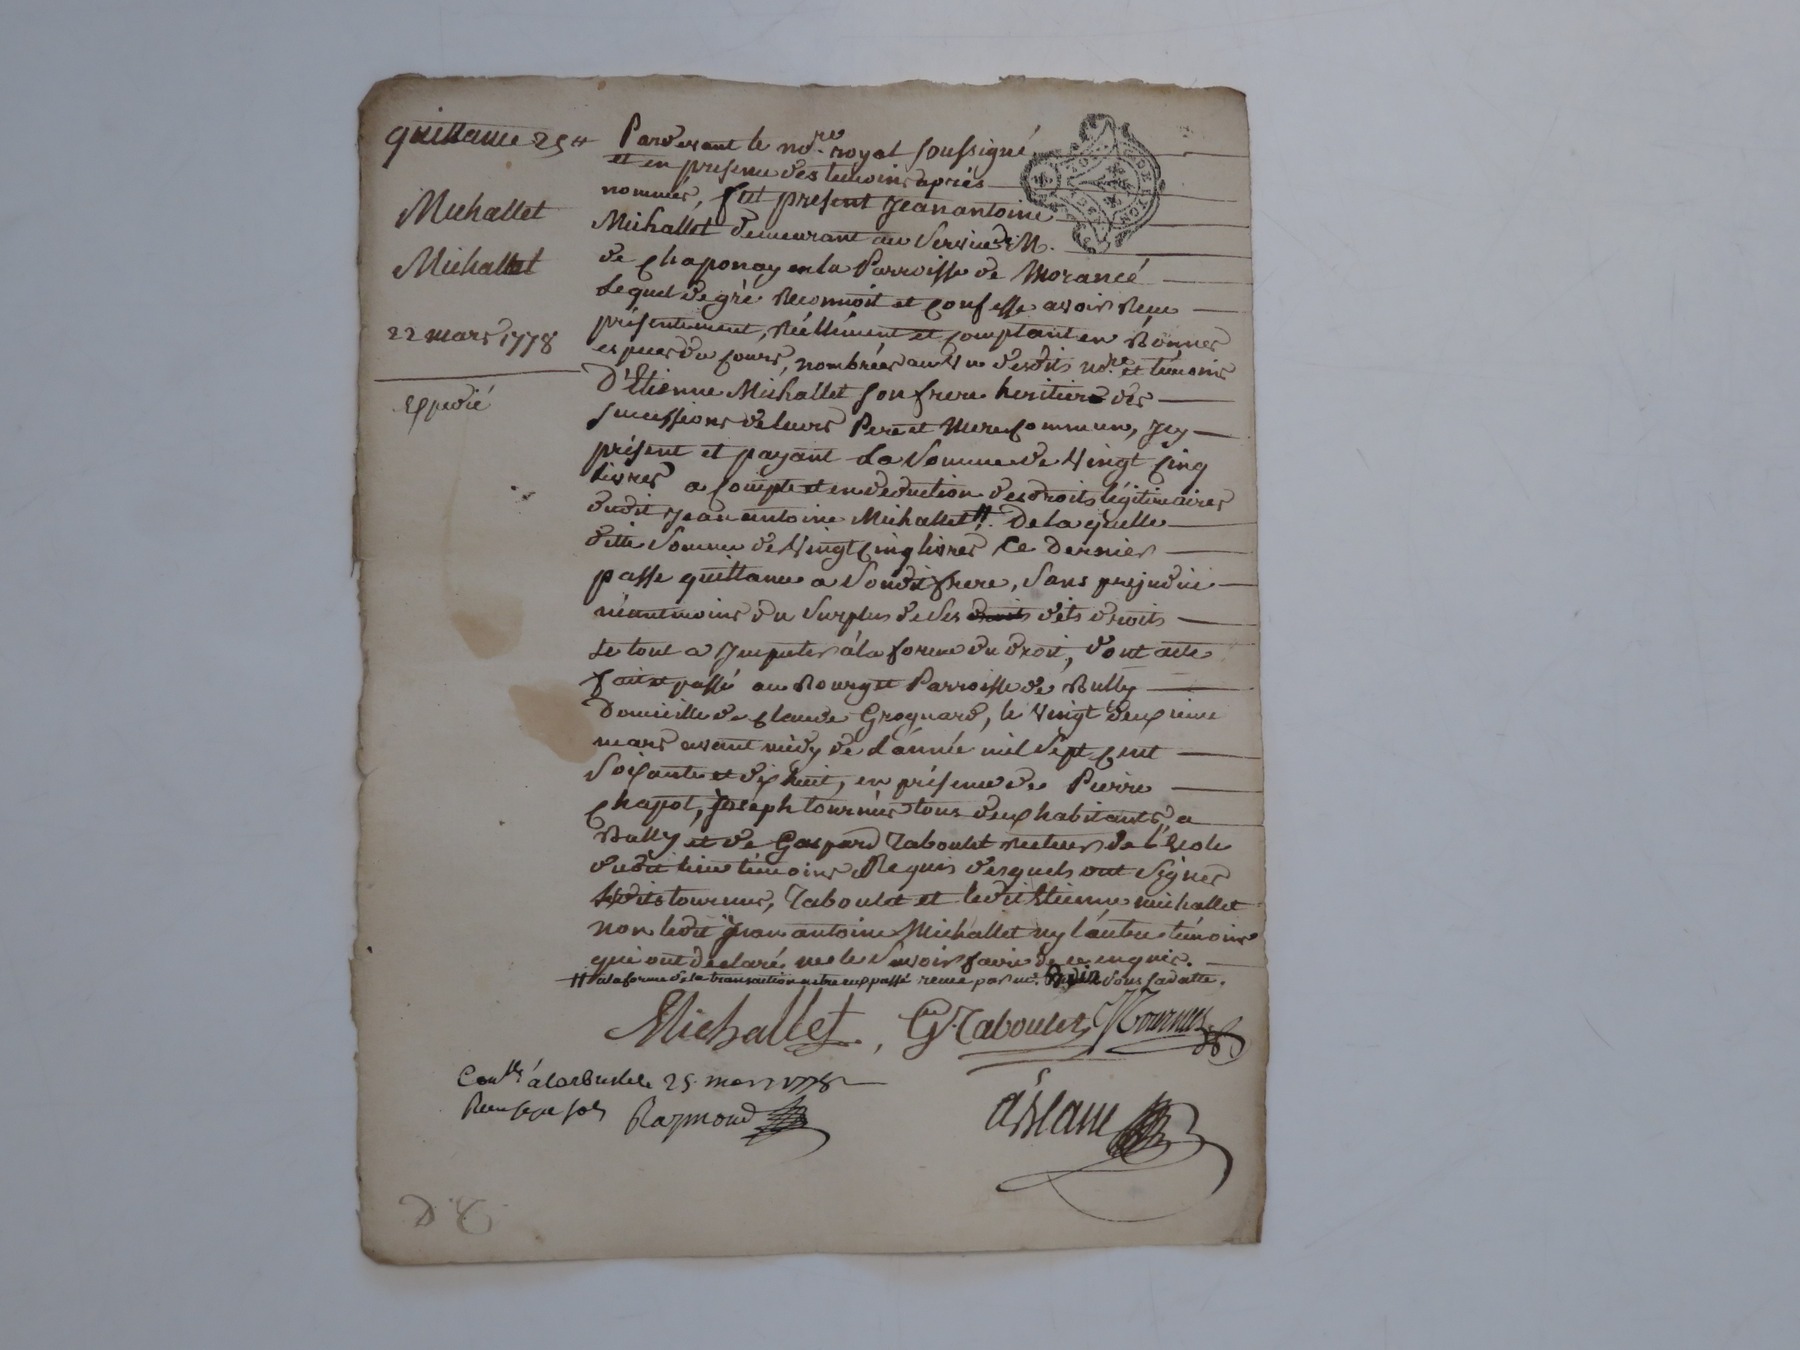 quittance 25 ₶
Michallet
Michallet
22 mars 1778
Expedié
Pardevant le no.re royal soussigné
et en presence des temoins après
nommés, fut present Jean antoine
Michallet demeurant au service de M.
de chaponay en la Parroisse de Morancé
Lequel de gré reconnoit et confesse avoir reçu
présentement, réellement et comptant en bonnes
especes du cours, nombrées au vu desdits no.re et témoins
D'Etienne Michallet son frere heritier des
successions de leurs Pere et Mere commun, Icy
présent et payant La somme de vingt cinq
livres a compte et en deduction des droits légitimaires
dudit Jean antoine Michallet ⧺. De laquelle
ditte somme de vingt cinq livres Ce Dernier
passe quittance a sondit frere, sans prejudice
néantmoins du surplus de ses droits dits droits
Le tout a Imputer à la forme du droit, dont acte
fait et passé au Bourg et Parroisse de Bully
Domicille de claude Grognard, le vingt deuxieme
mars avant midy de L'année mil sept cent
soixante et dix huit, en présence de Pierre
chapot, Joseph tournus tous deux habitants a
Bully et de Gaspard Taboulet recteur de l'Ecole
dudit lieu témoins Requis desquels ont signés
lesdits tournus, Taboulet et ledit Etienne michallet
non ledit Jean antoine Michallet ny l'autre témoins
qui ont declaré ne le savoir faire de ce enquis.
⧺ a la forme de la transaction entre eux passé recue par m.e sous sa datte.
Michallet, G. Taboulet, J Tournus
Con.lé à Larbresle le 25. mars 1778
Recu sept sols Raymond